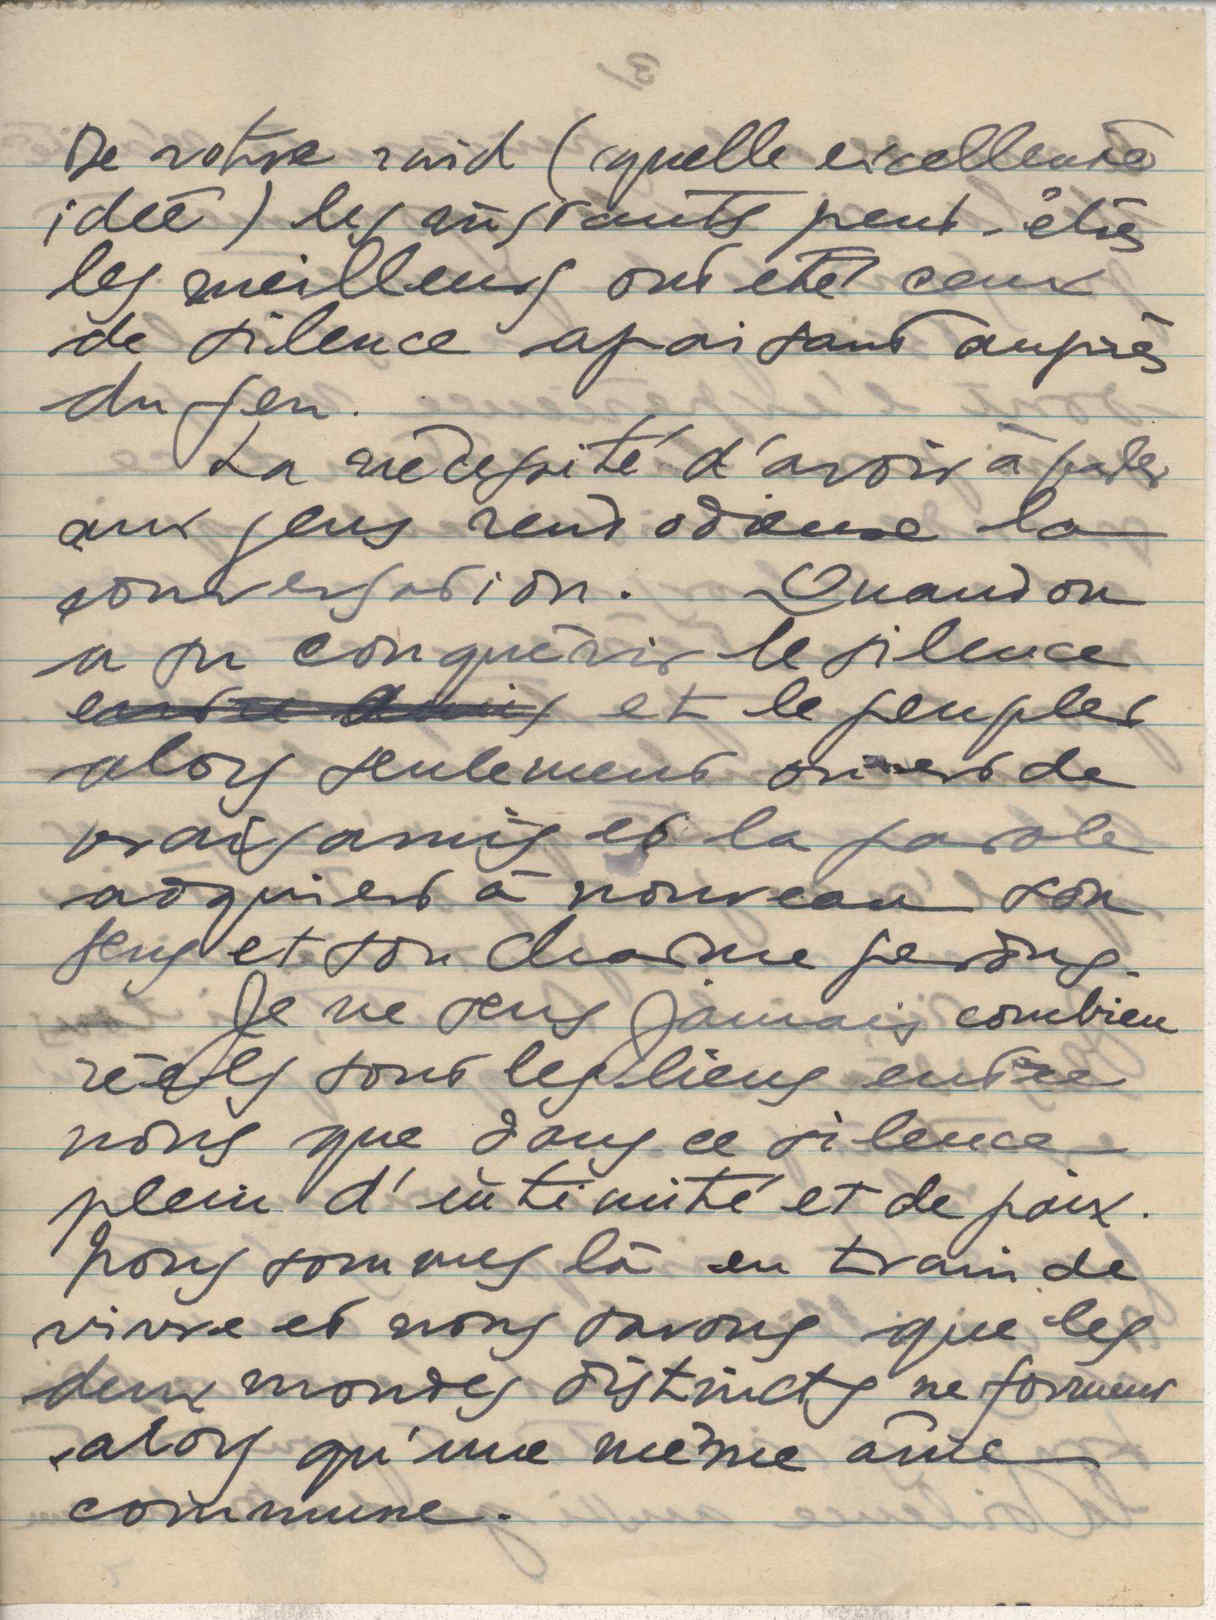 De votre raid (quelle excellente
idée) les instants peut-être
les meilleurs ont été ceux
de silence apaisant auprès
du feu.
La nécessité d'avoir à parler
aux gens rend odieuse la
conversation. Quand on
a su conquérir le silence
entre amis et le peupler
alors seulement on est de
vrais amis et la parole
acquiert à nouveau son
sens et son charme
Je ne sens jamais combien
réels sont les liens entre
nous que dans ce silence
plein d'intimité et de paix.
Nous sommes là en train de
vivre et nous savons que les
deux mondes distincts ne forment
alors qu'une même âme
commune.